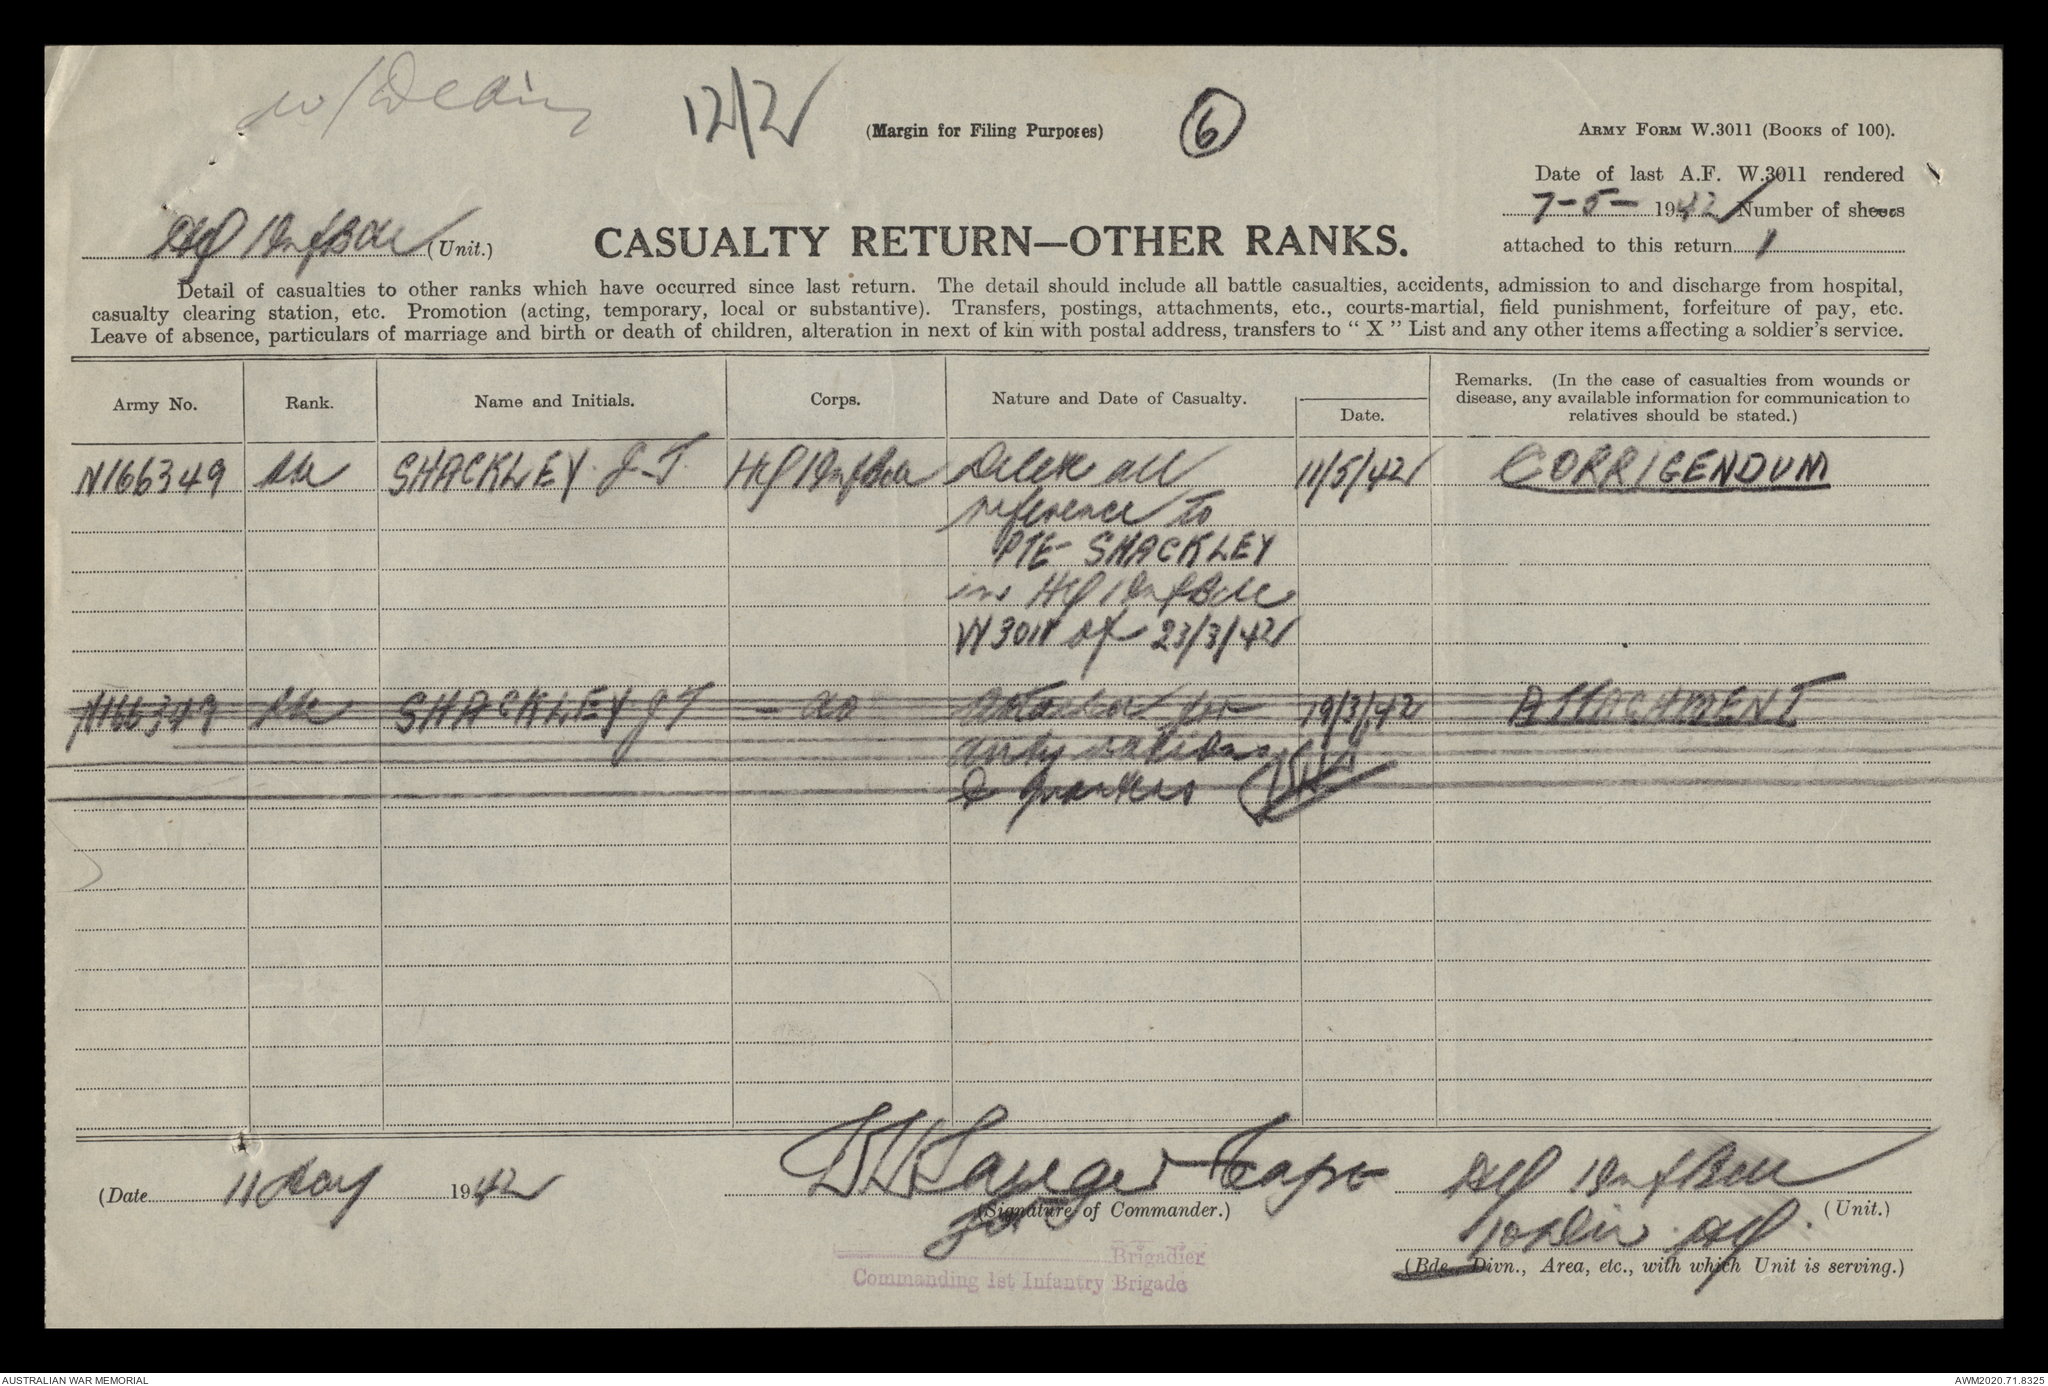 12/2
(Margin for Filing Purposes)
6
ARMY FORM W.3011 (Books of 100).
Date of last A.F. W.3011 rendered
7-5- 1942 Number of sheets
attached to this return 1
Hq 1 Inf Bde (Unit.)
CASUALTY RETURN—OTHER RANKS.
Detail of casualties to other ranks which have occurred since last return. The detail should include all battle casualties, accidents, admission to and discharge from hospital,
casualty clearing station, etc. Promotion (acting, temporary, local or substantive). Transfers, postings, attachments, etc., courts-martial, field punishment, forfeiture of pay, etc.
Leave of absence, particulars of marriage and birth or death of children, alteration in next of kin with postal address, transfers to " X " List and any other items affecting a soldier's service.
Army No. Rank. Name and Initials. Corps. Nature and Date of Casualty. Date. Remarks. (In the case of casualties from wounds or
disease, any available information for communication to
relatives should be stated.)
N166349 Pte SHACKLEY J-T Hq 1 Inf Bde Delete all 11/5/42 CORRIGENDUM
reference to
PTE SHACKLEY
in Hq 1 Inf Bde
W3011 of 23/3/42
N166349 Pte SHACKLEY J T - do Attached for 19/3/42 ATTACHMENT
duty rations
& quarters
(Date 11 May 1942 Capt Hq 1 Inf Bde
(Signature of Commander.) (Unit.)
for 1 Div Hq.
Brigadier
Commanding 1st Infantry Brigade
(Bde., Divn., Area, etc., with which Unit is serving.)
AUSTRALIAN WAR MEMORIAL AWM2020.71.8325